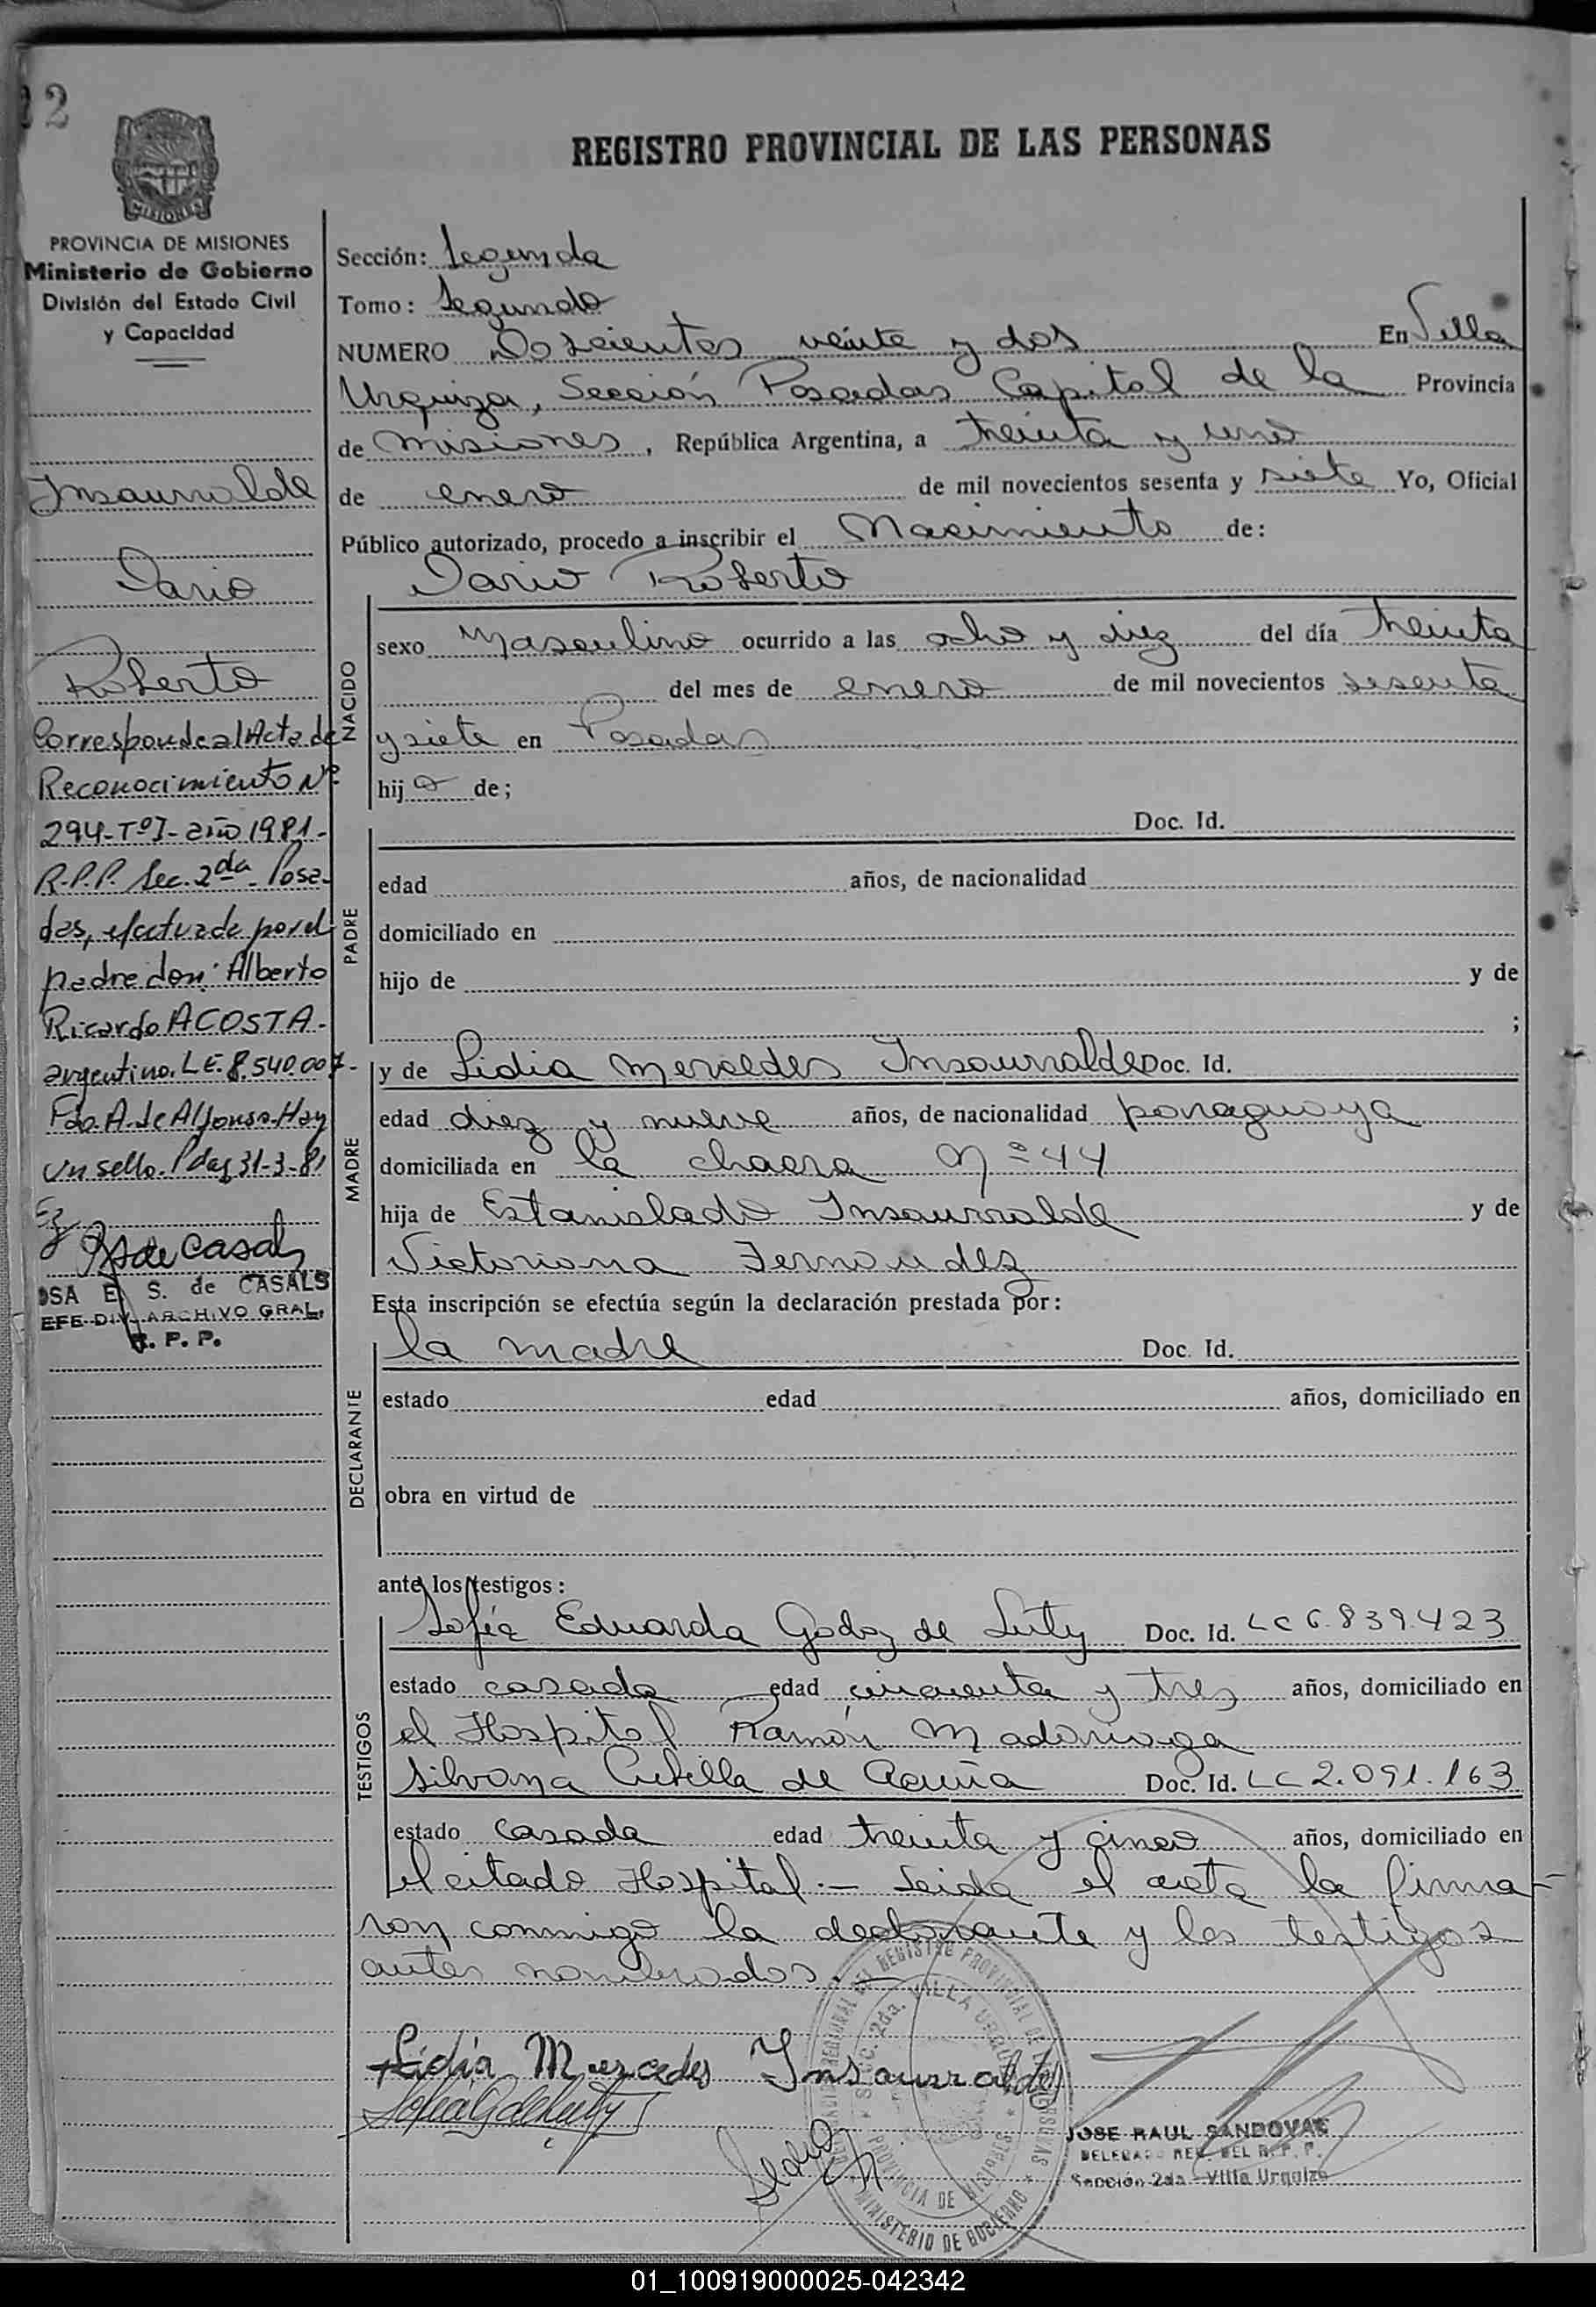 2
REGISTRO PROVINCIAL DE LAS PERSONAS
MISIONES
PROVINCIA DE MISIONES
Ministerio de Gobierno
División del Estado Civil
y Capacidad
Insaurralde
Dario
Roberto
Corresponde al Acta de
Reconocimiento Nº
294-TºI-año 1981-
R.P.P. Sec. 2da. Posa-
das, efectuada por el
padre don: Alberto
Ricardo ACOSTA-
argentino. L.E. 8.540.007-
Fdo. A. de Alfonso-Hay
un sello. Pdas, 31-3-81
de Casals
OSA E. S. de CASALS
EFE DIV. ARCHIVO GRAL.
R. P. P.
Sección: Segunda
Tomo: Segundo
NUMERO Doscientos veinte y dos En Villa
Urquiza, Sección Posadas Capital de la Provincia
de Misiones, República Argentina, a treinta y uno
de enero de mil novecientos sesenta y siete Yo, Oficial
Público autorizado, procedo a inscribir el Nacimiento de:
Dario Roberto
NACIDO
sexo Masculino ocurrido a las ocho y diez del día treinta
del mes de enero de mil novecientos sesenta
y siete en Posadas
hijo de;
PADRE
Doc. Id.
edad años, de nacionalidad
domiciliado en
hijo de y de
;
MADRE
y de Lidia Mercedes Insaurralde Doc. Id.
edad diez y nueve años, de nacionalidad paraguaya
domiciliada en la chacra Nº 44
hija de Estanislado Insaurralde y de
Victoriana Fernandez
Esta inscripción se efectúa según la declaración prestada por:
DECLARANTE
la madre Doc. Id.
estado edad años, domiciliado en
obra en virtud de
ante los testigos:
TESTIGOS
Sofía Eduarda Godoy de Luty Doc. Id. LC 6.839.423
estado casada edad cincuenta y tres años, domiciliado en
el Hospital Ramón Madariaga
Silvana Cubilla de Acuña Doc. Id. LC 2.091.163
estado casada edad treinta y cinco años, domiciliado en
el citado Hospital.— Leida el acta la firma-
ron conmigo la declarante y los testigos
antes nombrados.—
Lidia Mercedes Insaurralde
Sofia G de Luty
DEL REGISTRO PROVINCIAL DE LAS PERSONAS
SECC. 2da. VILLA URQUIZA
PROVINCIA DE MISIONES
MINISTERIO DE GOBIERNO
JOSE RAUL SANDOVAL
DELEGADO REG. DEL R. P. P.
Sección 2da - Villa Urquiza
01_100919000025-042342